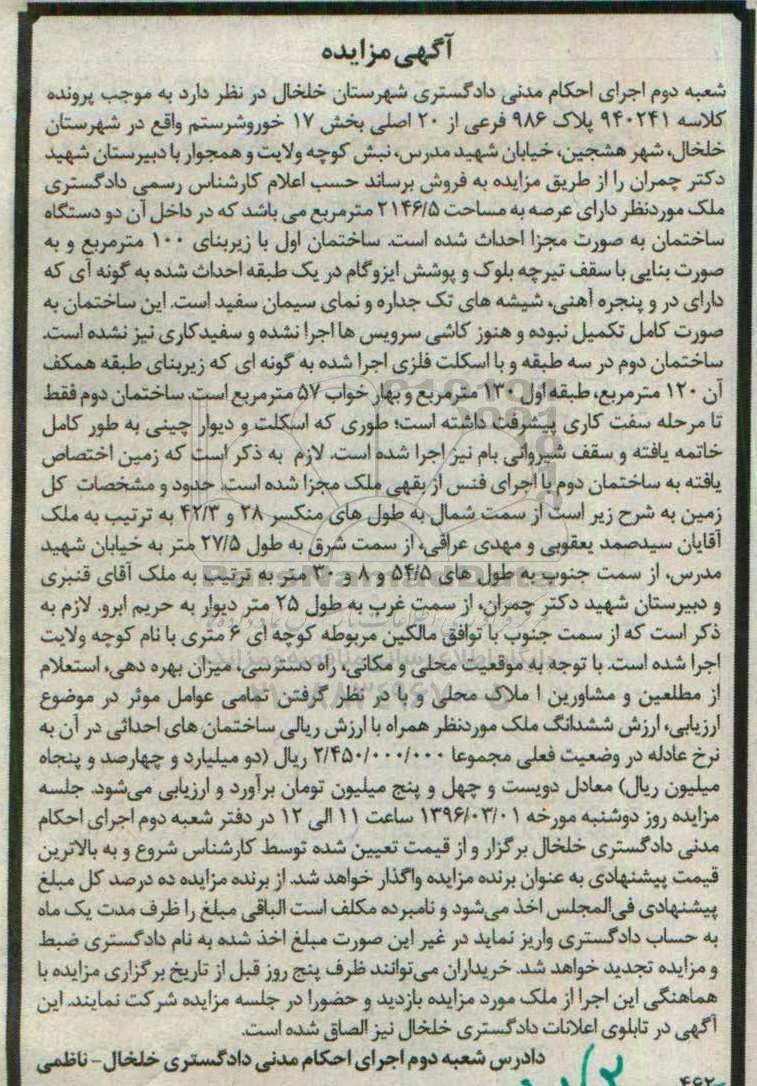 آگهی مزایده
شعبه دوم اجرای احکام مدنی دادگستری شهرستان خلخال در نظر دارد به موجب پرونده
کلاسه ۹۴۰۲۴۱ پلاک ۹۸۶ فرعی از ۲۰ اصلی بخش ۱۷ خوروشرستم واقع در شهرستان
خلخال، شهر هشجین، خیابان شهید مدرس، نبش کوچه ولایت و همجوار با دبیرستان شهید
دکتر چمران را از طریق مزایده به فروش برساند حسب اعلام کارشناس رسمی دادگستری
ملک موردنظر دارای عرصه به مساحت ۲۱۴۶/۵ مترمربع می باشد که در داخل آن دو دستگاه
ساختمان به صورت مجزا احداث شده است. ساختمان اول با زیربنای ۱۰۰ مترمربع و به
صورت بنایی با سقف تیرچه بلوک و پوشش ایزوگام در یک طبقه احداث شده به گونه آی که
دارای در و پنجره آهنی، شیشه های تک جداره و نمای سیمان سفید است. این ساختمان به
صورت کامل تکمیل نبوده و هنوز کاشی سرویس ها اجرا نشده و سفیدکاری نیز نشده است.
ساختمان دوم در سه طبقه و با اسکلت فلزی اجرا شده به گونه ای که زیربنای طبقه همکف
آن ۱۲۰ مترمربع، طبقه اول ۱۳۰ مترمربع و بهار خواب ۵۷ مترمربع است. ساختمان دوم فقط
تا مرحله سفت کاری پیشرفت داشته است؛ طوری که اسکلت و دیوار چینی به طور کامل
خاتمه یافته و سقف شیروانی بام نیز اجرا شده است. لازم به ذکر است که زمین اختصاص
یافته به ساختمان دوم با اجرای فنس از بقهی ملک مجزا شده است. حدود و مشخصات کل
زمین به شرح زیر است از سمت شمال به طول های منکسر ۲۸ و ۴۲/۳ به ترتیب به ملک
آقایان سیدصمد یعقوبی و مهدی عراقی، از سمت شرق به طول ۲۷/۵ متر به خیابان شهید
مدرس، از سمت جنوب به طول های ۵۴/۵ و ۸ و ۳۰ متر به ترتیب به ملک آقای قنبری
و دبیرستان شهید دکتر چمران، از سمت غرب به طول ۲۵ متر دیوار به حریم ابرو. لازم به
ذکر است که از سمت جنوب با توافق مالکین مربوطه کوچه آی ۶ متری با نام کوچه ولایت
اجرا شده است. با توجه به موقعیت محلی و مکانی، راه دسترسی، میزان بهره دهی، استعلام
از مطلعین و مشاورین ا ملاک محلی و با در نظر گرفتن تمامی عوامل موثر در موضوع
ارزیابی، ارزش ششدانگ ملک موردنظر همراه با ارزش ریالی ساختمان های احداثی در آن به
نرخ عادله در وضعیت فعلی مجموعا ۲/۴۵۰/۰۰۰/۰۰۰ ریال (دو میلیارد و چهارصد و پنجاه
میلیون ریال) معادل دویست و چهل و پنج میلیون تومان برآورد و ارزیابی می‌شود. جلسه
مزایده روز دوشنبه مورخه ۱۳۹۶/۰۳/۰۱ ساعت ۱۱ الی ۱۲ در دفتر شعبه دوم اجرای احکام
مدنی دادگستری خلخال برگزار و از قیمت تعیین شده توسط کارشناس شروع و به بالاترین
قیمت پیشنهادی به عنوان برنده مزایده واگذار خواهد شد. از برنده مزایده ده درصد کل مبلغ
پیشنهادی فی‌المجلس اخذ می‌شود و نامبرده مکلف است الباقی مبلغ را ظرف مدت یک ماه
به حساب دادگستری واریز نماید در غیر این صورت مبلغ اخذ شده به نام دادگستری ضبط
و مزایده تجدید خواهد شد. خریداران می‌توانند ظرف پنج روز قبل از تاریخ برگزاری مزایده با
هماهنگی این اجرا از ملک مورد مزایده بازدید و حضورا در جلسه مزایده شرکت نمایند. این
آگهی در تابلوی اعلانات دادگستری خلخال نیز الصاق شده است.
دادرس شعبه دوم اجرای احکام مدنی دادگستری خلخال- ناظمی